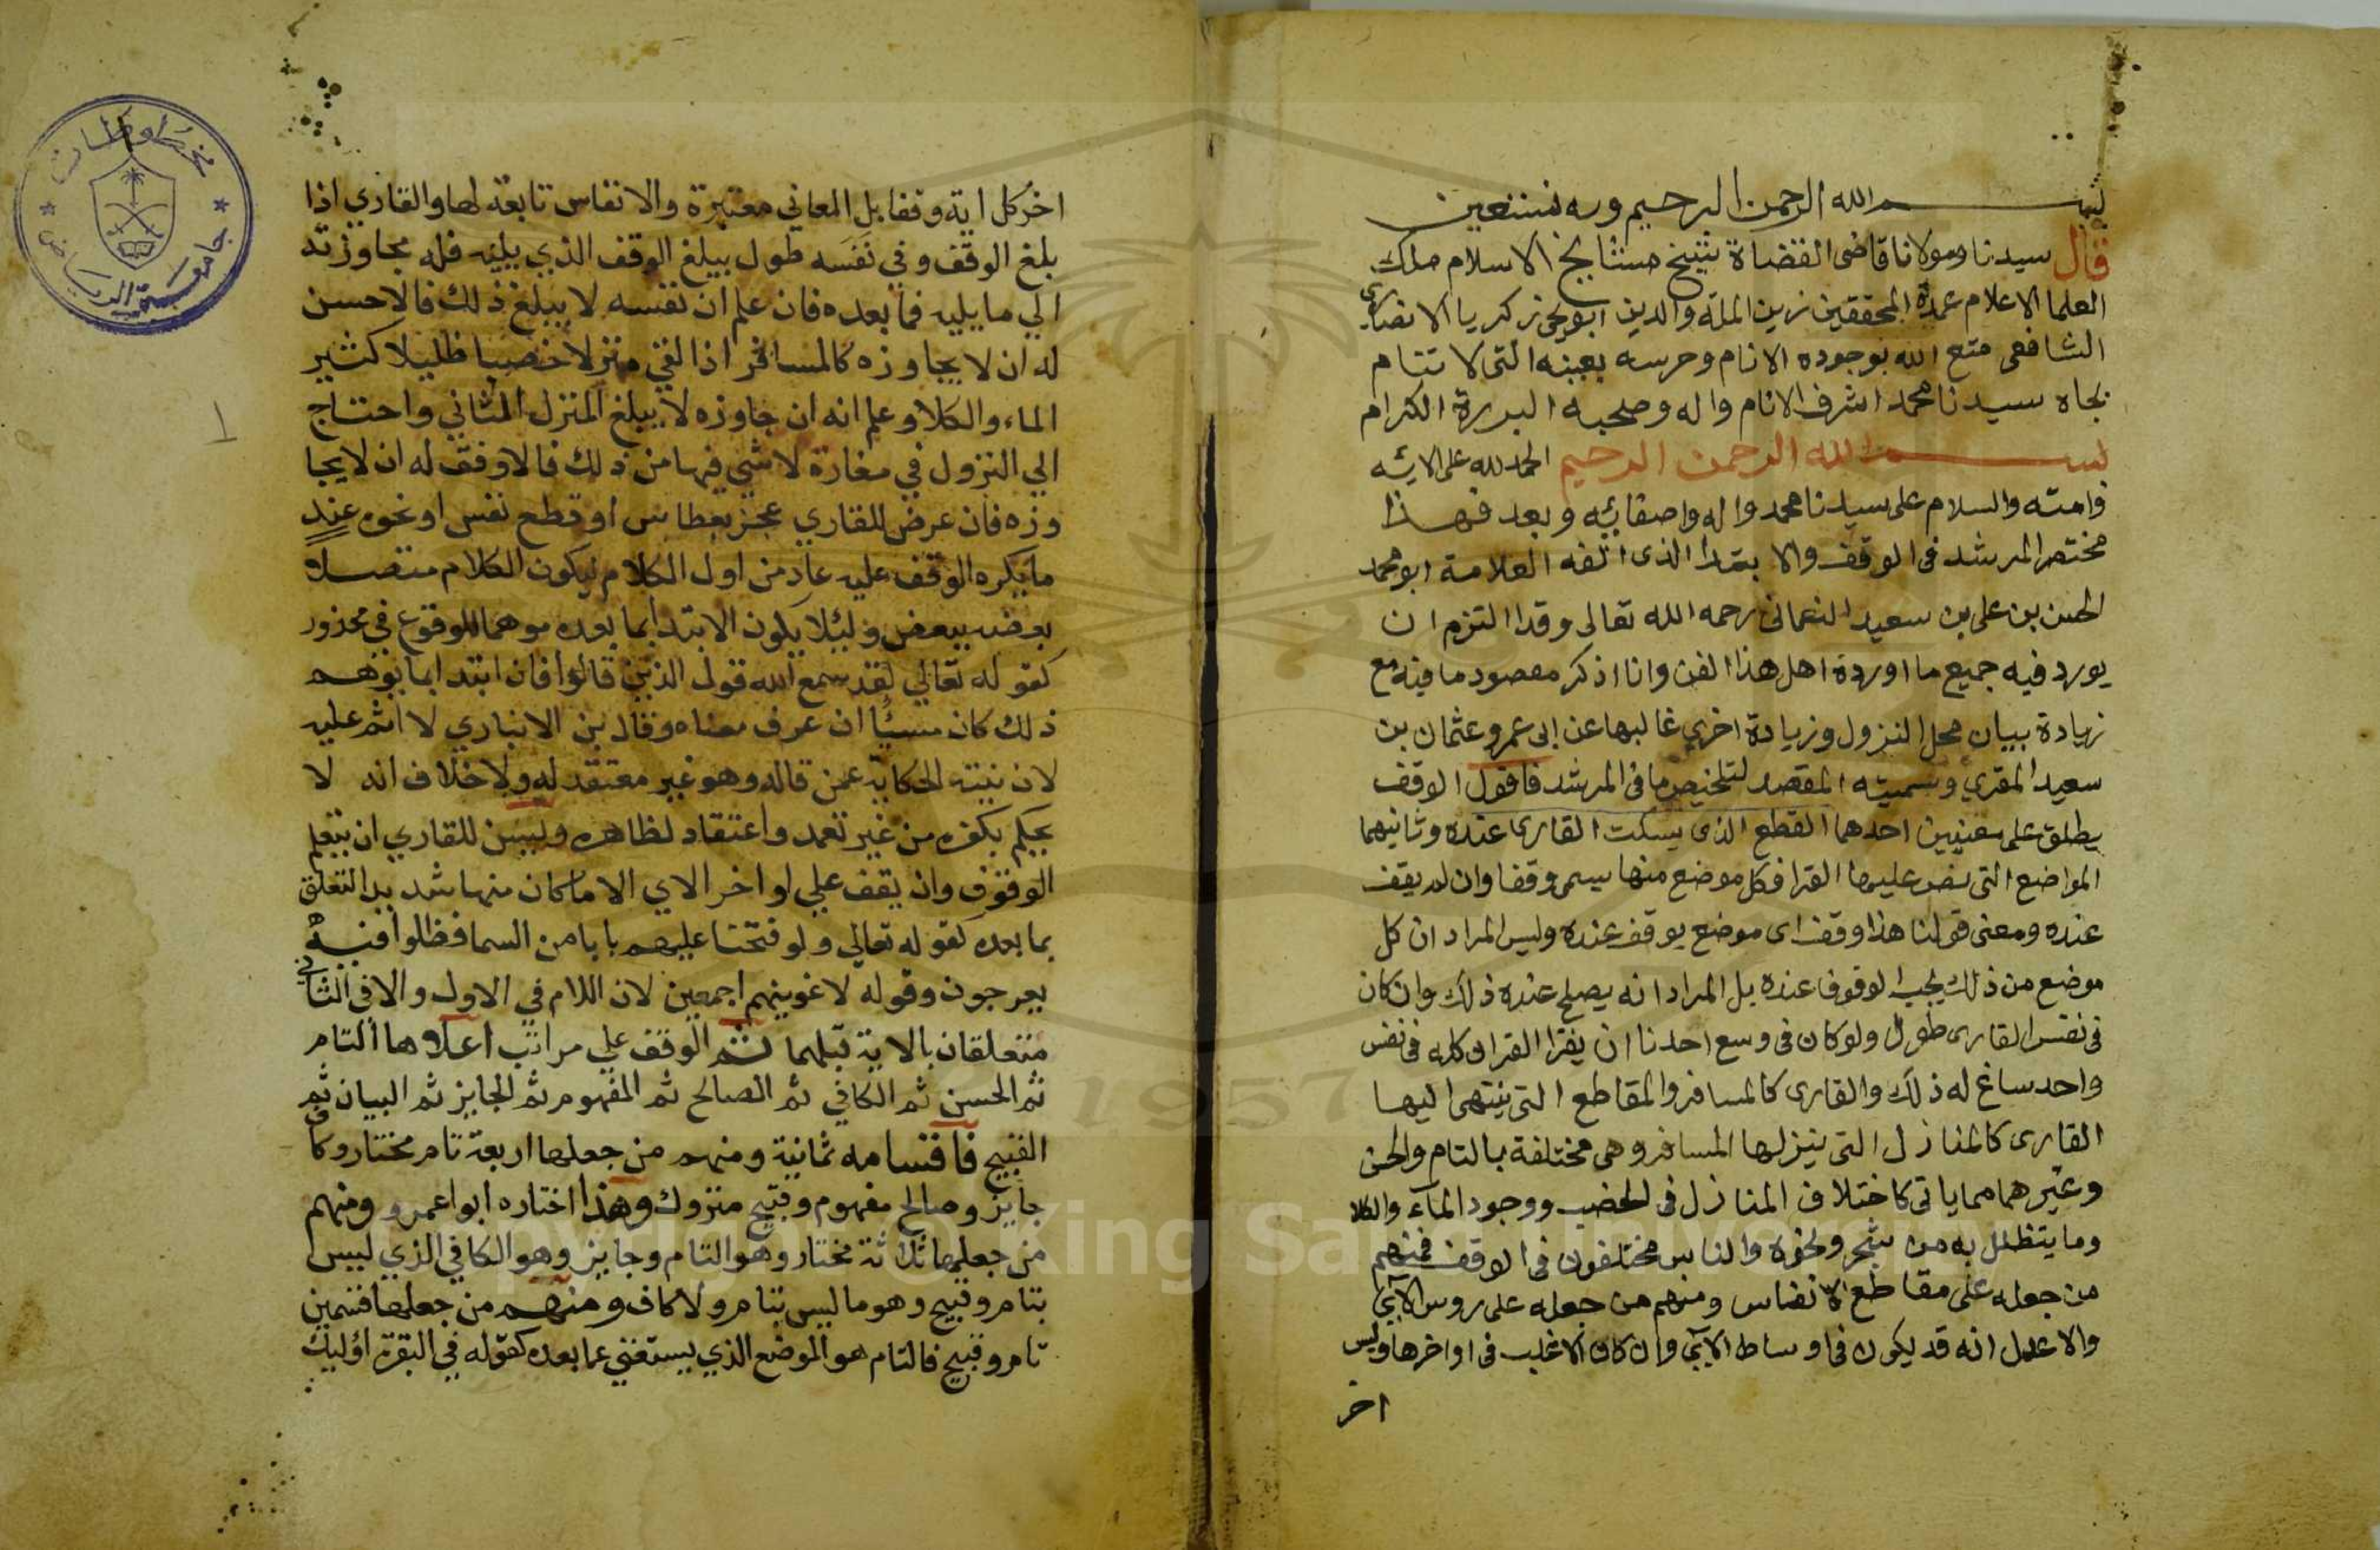 بسم الله الرحمن الرحيم وبه نستعين
قال سيدنا ومولانا قاضى القضاة شيخ مشايخ الاسلام ملك
العلما الاعلام عمدة المحققين زين الملة والدين ابو يحيى زكريا الانصارى
الشافعى متع الله بوجوده الانام وحرسه بعينه التى لا تنام
بجاه سيدنا محمد اشرف الانام واله وصحبه البررة الكرام
بسم الله الرحمن الرحيم الحمد لله على الائه
والسلام على سيدنا محمد واله واصفيائه وبعد فهذا
مختصر المرشد فى الوقف والابتدا الذى الفه العلامة ابو محمد
الحسن بن على بن سعيد العمانى رحمه الله تعالى وقد التزم ان
يورد فيه جميع ما اورده اهل هذا الفن وانا اذكر مقصود ما فيه مع
زيادة بيان محل النزول وزيادة اخرى غالبها عن ابى عمرو عثمان بن
سعيد المقري وسميته المقصد لتلخيص ما فى المرشد فاقول الوقف
يطلق على معنيين احدهما القطع الذى يسكت القارى عنده وثانيهما
المواضع التى نص عليها القرا فكل موضع منها يسمى وقفا وان لم يقف
عنده ومعنى قولنا هذا وقف اى موضع يوقف عنده وليس المراد ان كل
موضع من ذلك يجب الوقوف عنده بل المراد انه يصلح عنده ذلك وان كان
فى نفس القارى طول ولو كان فى وسع احدنا ان يقرا القران كله فى نفس
واحد ساغ له ذلك والقارى كالمسافر والمقاطع التى ينتهى اليها
القارى كالمنازل التى ينزلها المسافر وهى مختلفة بالتام والحسن
وغيرهما مما ياتى كاختلاف المنازل فى الخصب ووجود الماء والكلا
وما يتظلل به من شجر ونحوه والناس مختلفون فى الوقف فمنهم
من جعله على مقاطع الانفاس ومنهم من جعله على روس الآي
والاعدل انه قد يكون فى اوساط الآي وان كان الاغلب فى اواخرها وليس
اخر
اخر كل اية وقفا بل المعاني معتبرة والانفاس تابعة لها والقاري اذا
بلغ الوقف وفي نفسه طول يبلغ الوقف الذي يليه فله مجاوزته
الي ما يليه فما بعده فان علم ان نفسه لا يبلغ ذلك فالاحسن
له ان لا يجاوزه كالمسافر اذا لقي منزلا خصبا ظليلا كثير
الماء والكلا وعلم انه ان جاوزه لا يبلغ المنزل الثاني واحتاج
الي النزول في مفازة لا شي فيها من ذلك فالاوفق له ان لا يجا
وزه فان عرض للقاري عجز بعطاس او قطع نفس او نحوه عند
ما يكره الوقف عليه عاد من اول الكلام ليكون الكلام متصلا
بعضه ببعض ولئلا يكون الابتدا بما بعده موهما للوقوع في محذور
كقوله تعالي لقد سمع الله قول الذين قالوا فان ابتدا بما يوهم
ذلك كان مسيئا ان عرف معناه وقال بن الانباري لا اثم عليه
لان نيته الحكاية عمن قاله وهو غير معتقد له ولا خلاف انه لا
يحكم بكفره من غير تعمد واعتقاد لظاهره وليس للقاري ان يتعلم
الوقوف وان يقف علي اواخر الاي الا ما كان منها شديد التعلق
بما بعده كقوله تعالي ولو فتحنا عليهم بابا من السما فظلوا فيه
يعرجون وقوله لاغوينهم اجمعين لان اللام في الاول والا في الثاني
متعلقان بالاية قبلهما ثم الوقف علي مراتب اعلاها التام
ثم الحسن ثم الكافي ثم الصالح ثم المفهوم ثم الجايز ثم البيان ثم
القبيح فاقسامه ثمانية ومنهم من جعلها اربعة تام مختار وكاف
جايز وصالح مفهوم وقبيح متروك وهذا اختاره ابوا عمرو ومنهم
من جعلها ثلاثة مختار وهو التام وجايز وهو الكافي الذي ليس
بتام وقبيح وهو ما ليس بتام ولا كاف ومنهم من جعلها قسمين
تام وقبيح فالتام هو الموضع الذي يستغني عما بعده كقوله في البقرة اوليك
مخطوطات
جامعة الرياض
1957
Copyright © King Saud University